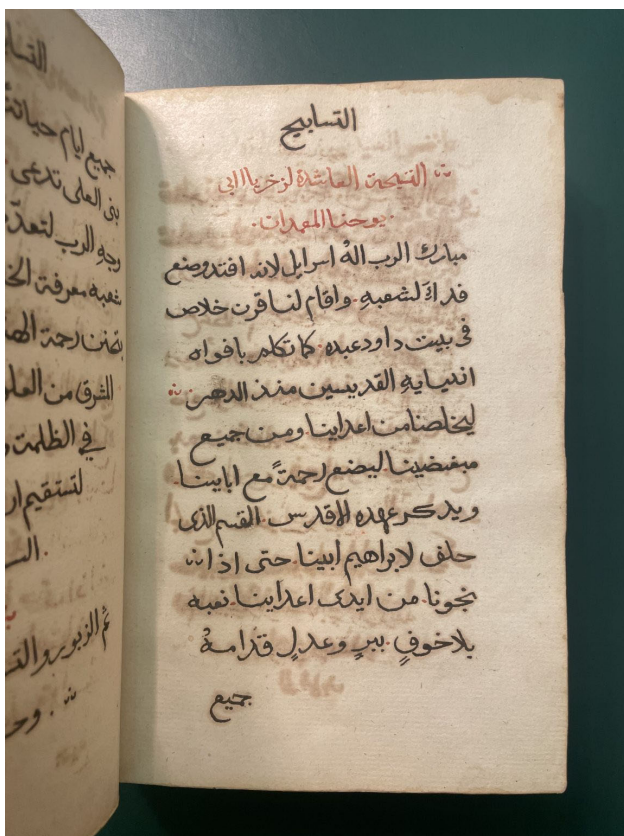 التسابيح
التسبحة العاشرة لزخريا ابى
يوحنا المعمدان
مبارك الرب اله اسرايل لانه افتقد وصنع
فداءً لشعبهِ واقام لنا قرن خلاص
فى بيت داود عبده كما تكلم بافواه
انبيايهِ القديسين منذ الدهر
ليخلصنا من اعداينا ومن جميع
مبغضينا ليضع رحمةً مع اباينا
ويدكر عهده الاقدس القسم الذى
حلف لابراهيم ابينا حتى اذا
نجونا من ايدى اعداينا نعبه
بلا خوفٍ ببرٍ وعدلٍ قدامهُ
جميع
جميع ايام حياتنا
بنى العلى تدعى
وجه الرب لتعد
شعبه معرفة الخ
تحنن رحمة الهنا
المشرق من العلو
في الظلمت
لتستقيم ار
ثم الزبور والتس